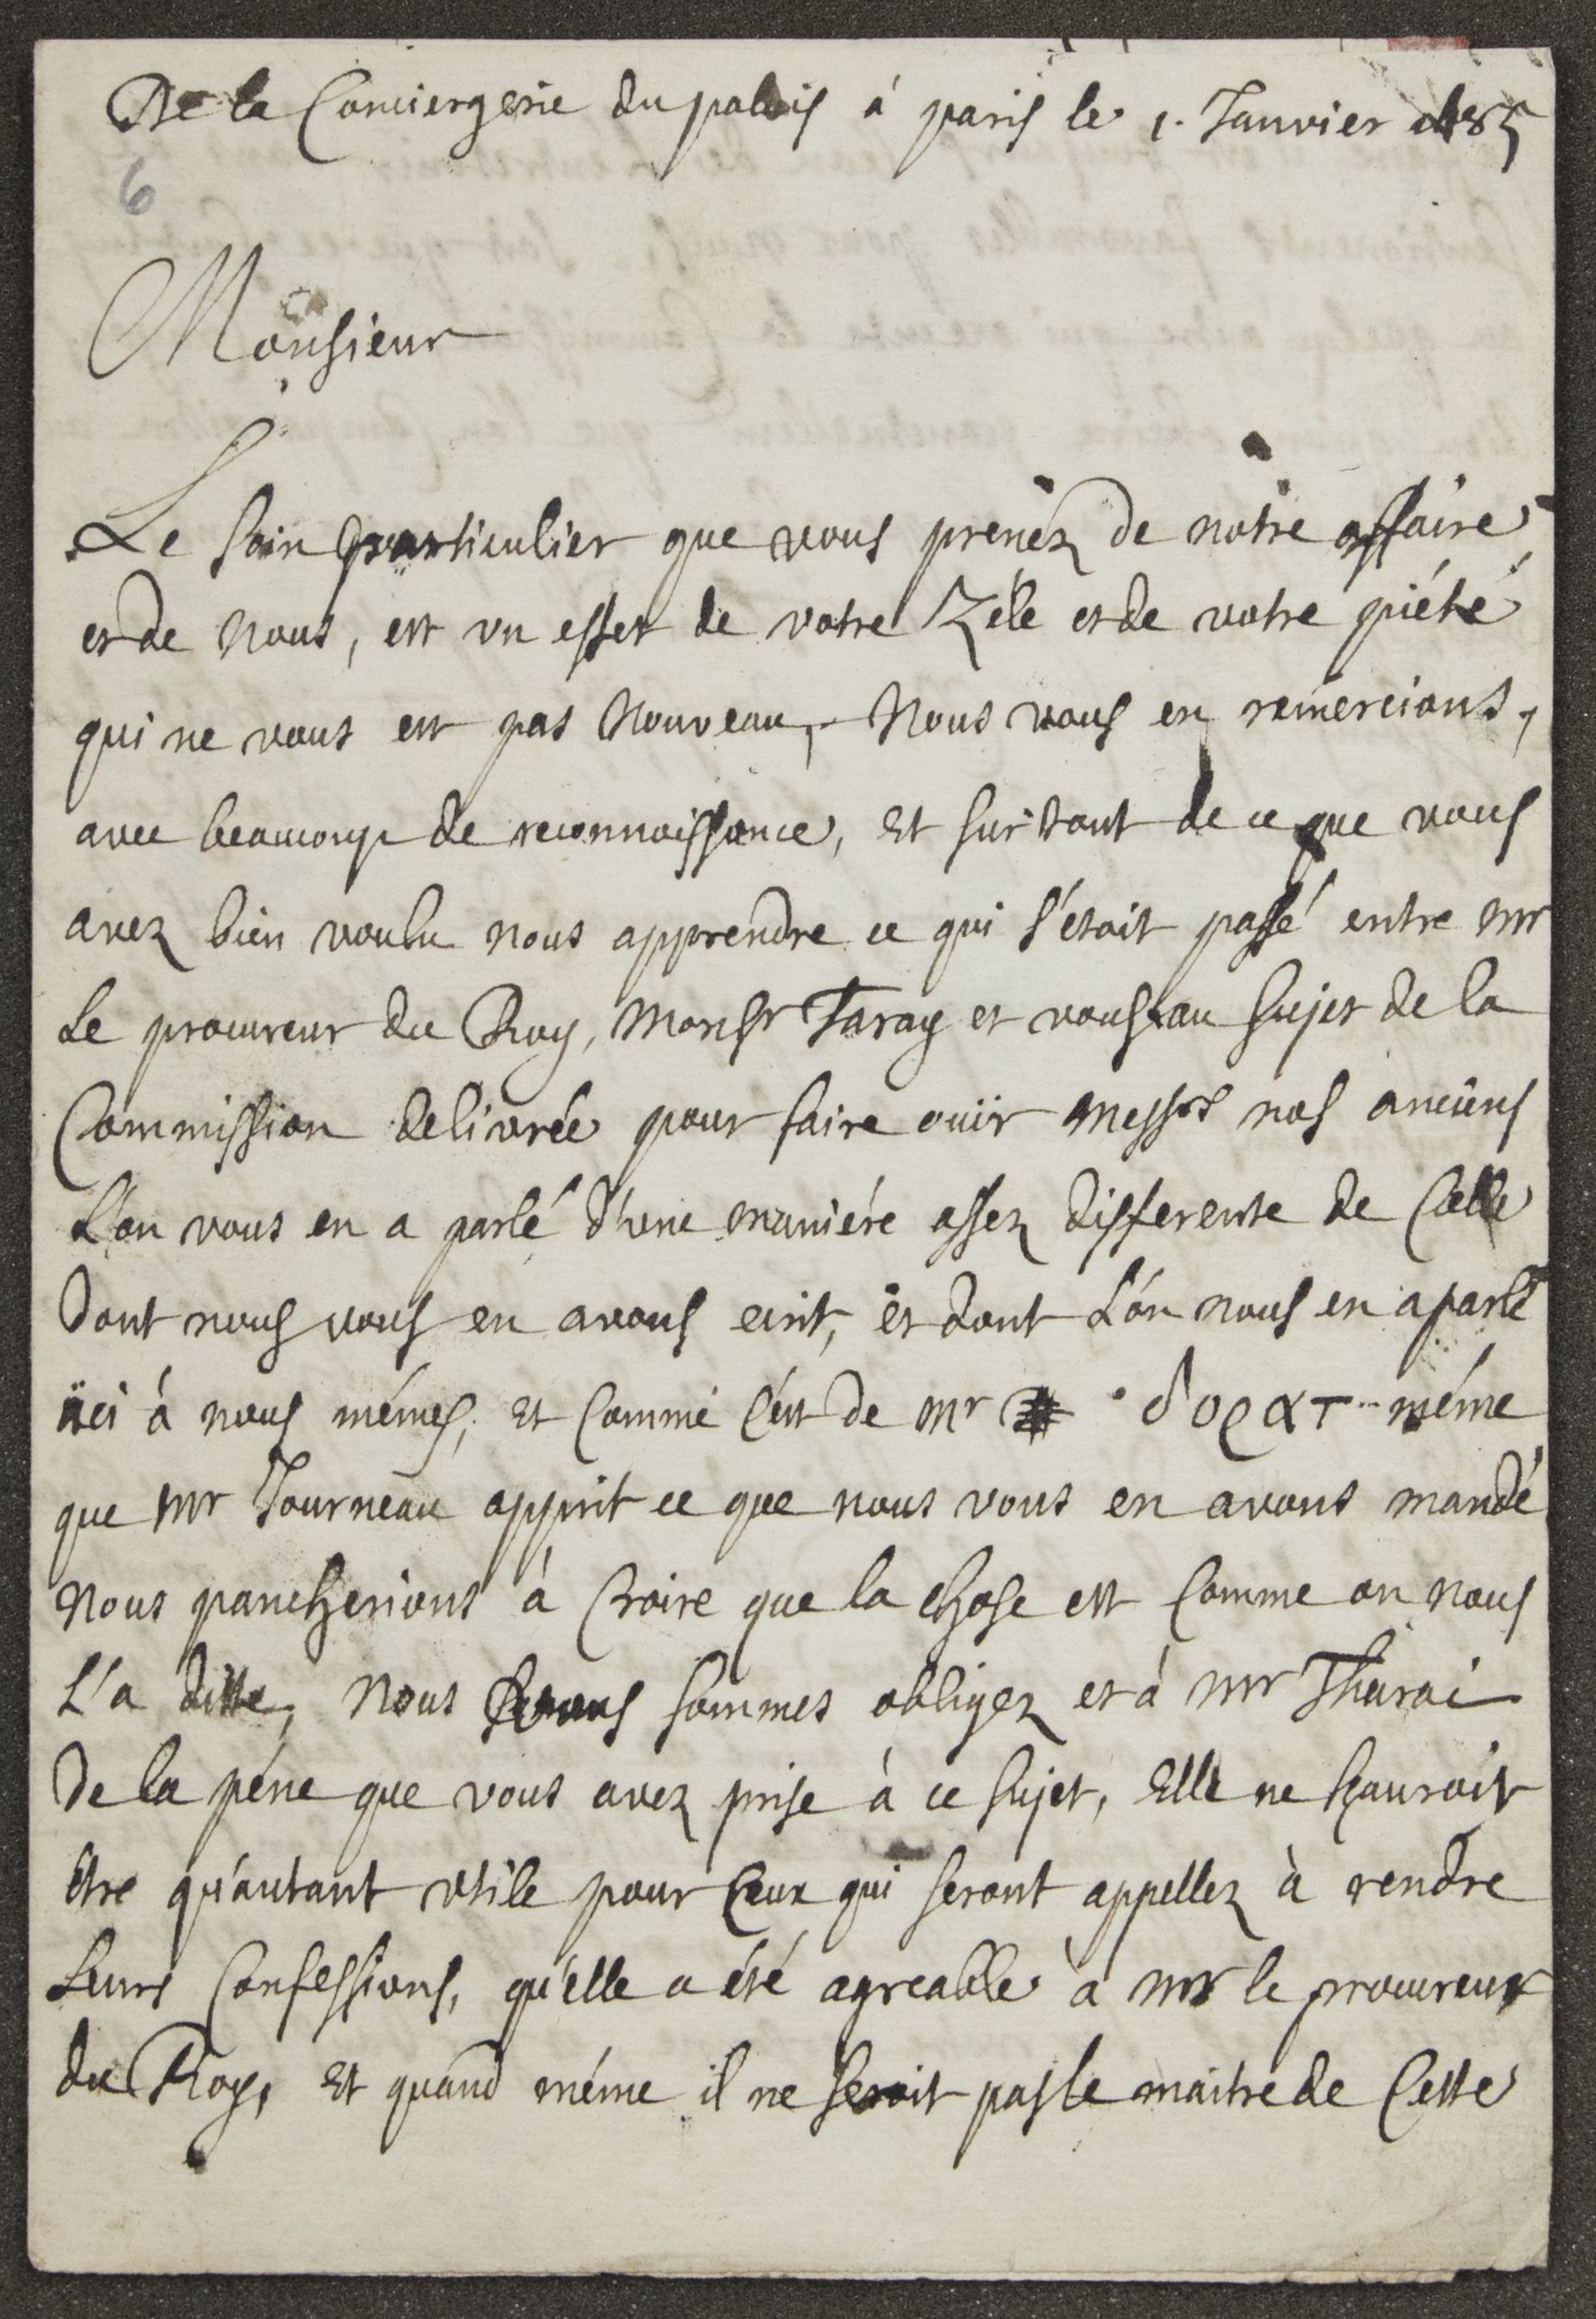 De la Conciergerie du palais à paris le 1. Janvier 1685
6
Monsieur
Le soin particulier que vous prenéz de notre affaire
et de nous, est vn effet de votre Zéle et de votre piété
qui ne vous est pas nouveau, Nous vous en remercions,
avec beaucoup de reconnoissance, Et sur tout de ce que vous
avez bien voulu nous apprendre ce qui s'étoit passé entre mr
Le procureur du Roy, Monsr Taray et vous au sujet de la
Commission delivrée pour faire ouïr messrs nos anciens
L'on vous en a parlé d'une maniére assez differente de Celle
Dont nous vous en avons ecrit, et dont L'on nous en a parlé
ici à nous mémes, Et Comme C'est de mr δοραт méme
que mr Journeau apprit ce que nous vous en avons mandé
Nous pancherions à Croire que la chose est Comme on nous
L'a ditte, Nous vous sommes obligez et à mr Tharai
De la péne que vous avez prise à ce sujet, Elle ne sçauroit
être qu'autant vtile pour Ceux qui seront appellez à rendre
Leurs Confessions, qu'elle a été agreable à mr le procureur
du Roy, Et quand méme il ne seroit pas le maitre de Cette